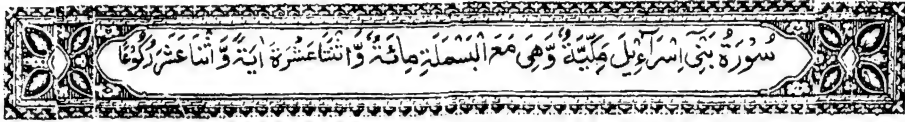 سُوْرَةُ بَنِیْۤ اِسْرَآءِیْلَ مَكِّیَّةٌ وَّهِیَ مَعَ الْبَسْمَلَةِ مِائَةٌ وَّاثْنَتَاعَشْرَةَ اٰیَةً وَّاثْنَاعَشَرَ رُكُوْعًا